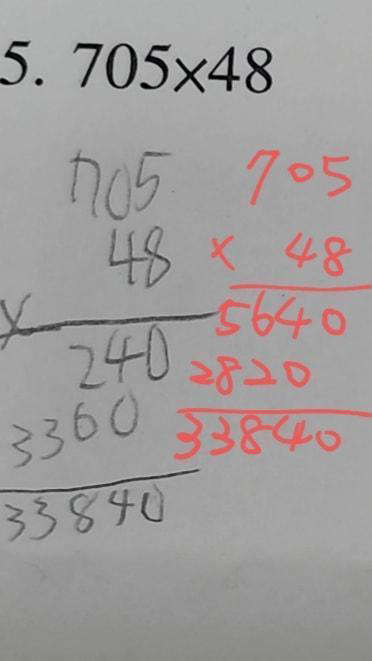 5. 705×48
705
48
×
240
3360
33840
705
× 48
5640
2820
33840